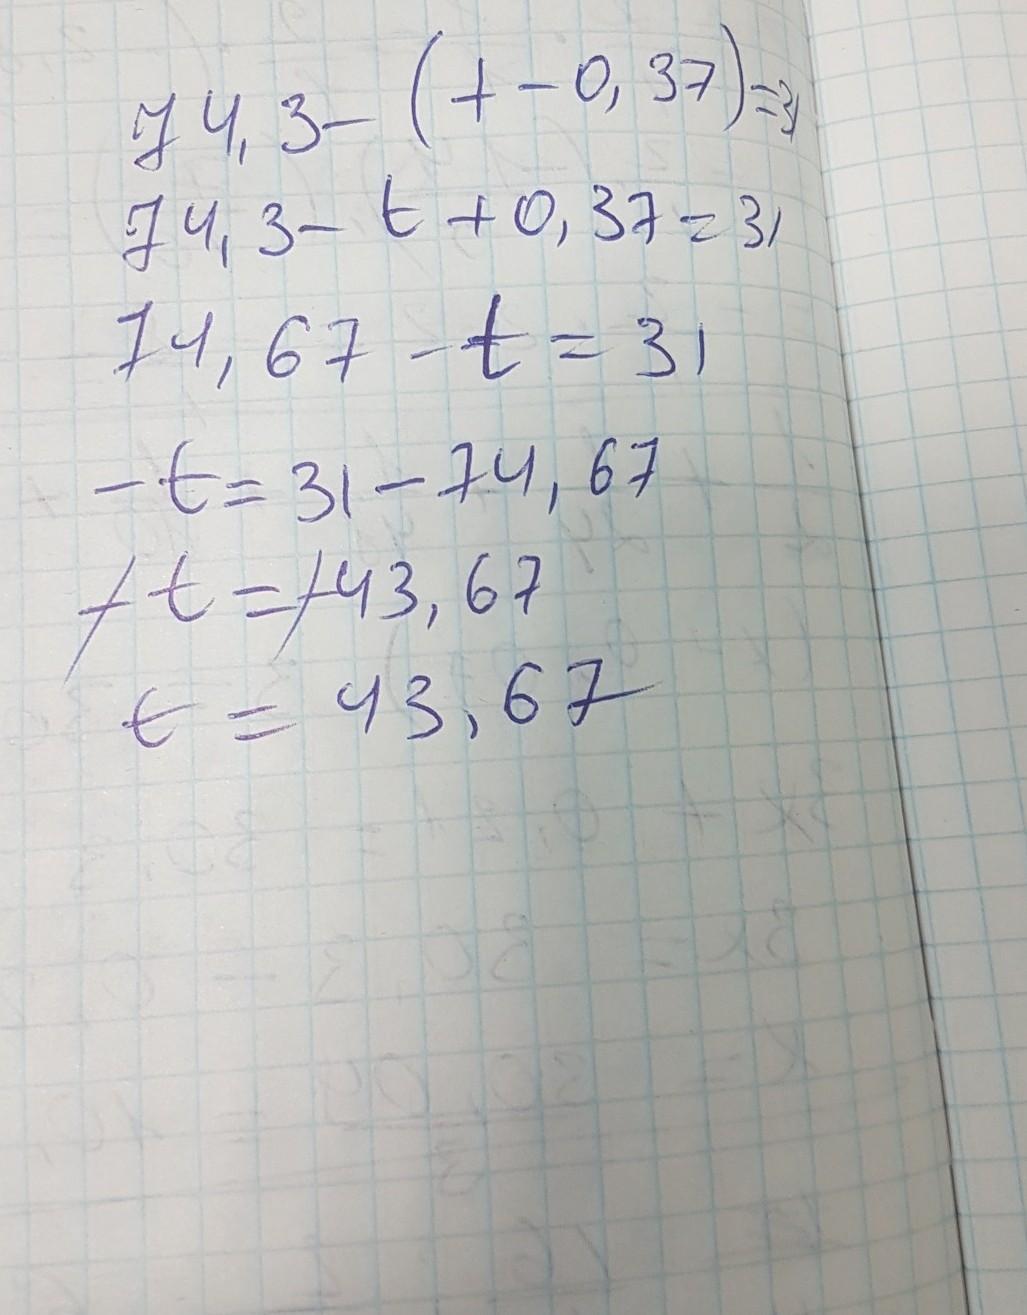 74,3-(t-0,37)=31
74,3-t+0,37=31
74,67-t=31
-t=31-74,67
-t=-43,67
t=43,67